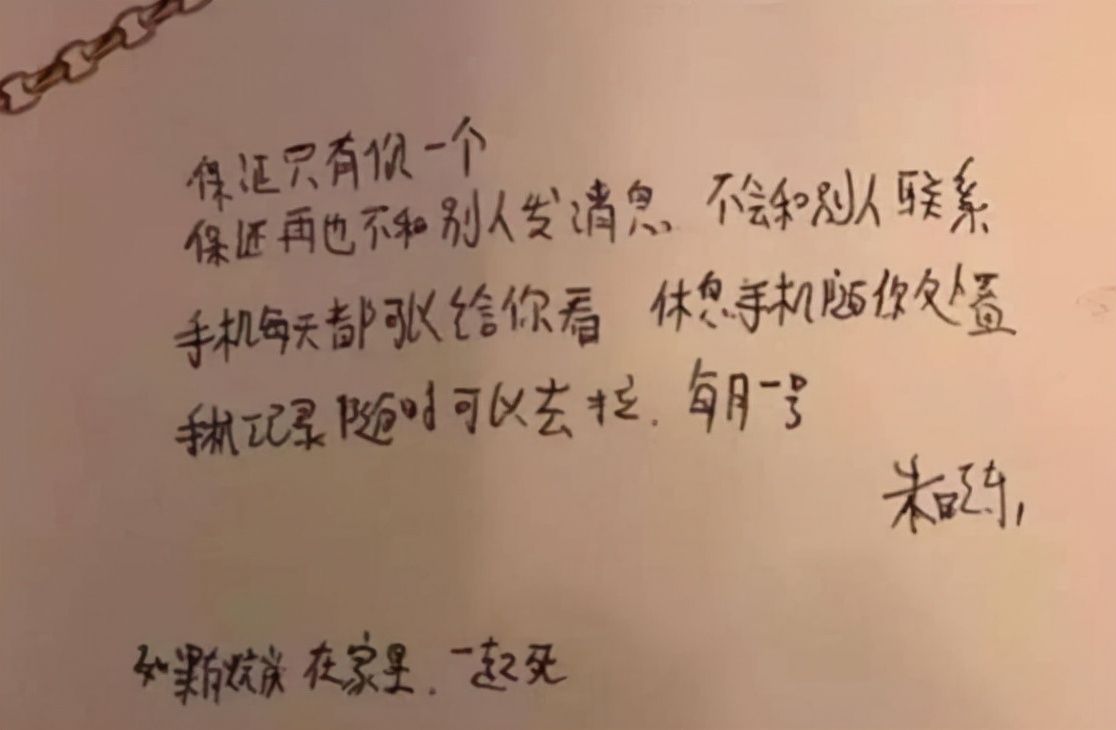 保证只有你一个
保证再也不和别人发消息 不会和别人联系
手机每天都可以给你看 休息手机随你处置
手机记录随时可以去拉. 每月一号
朱晓东,
如果有 在家里. 一起死